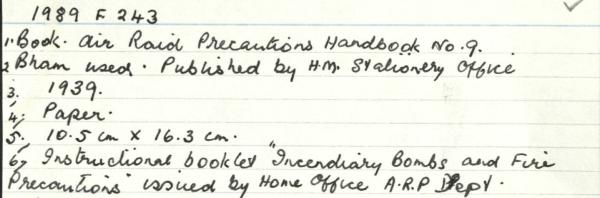 1989 F 243
1. Book. Air Raid Precautions Handbook No. 9.
2 Bham used. Published by H.M. Stationery Office
3. 1939.
4, Paper.
5, 10.5 cm x 16.3 cm.
6, Instructional booklet "Incendiary Bombs and Fire
Precautions" issued by Home Office A.R.P Dept.